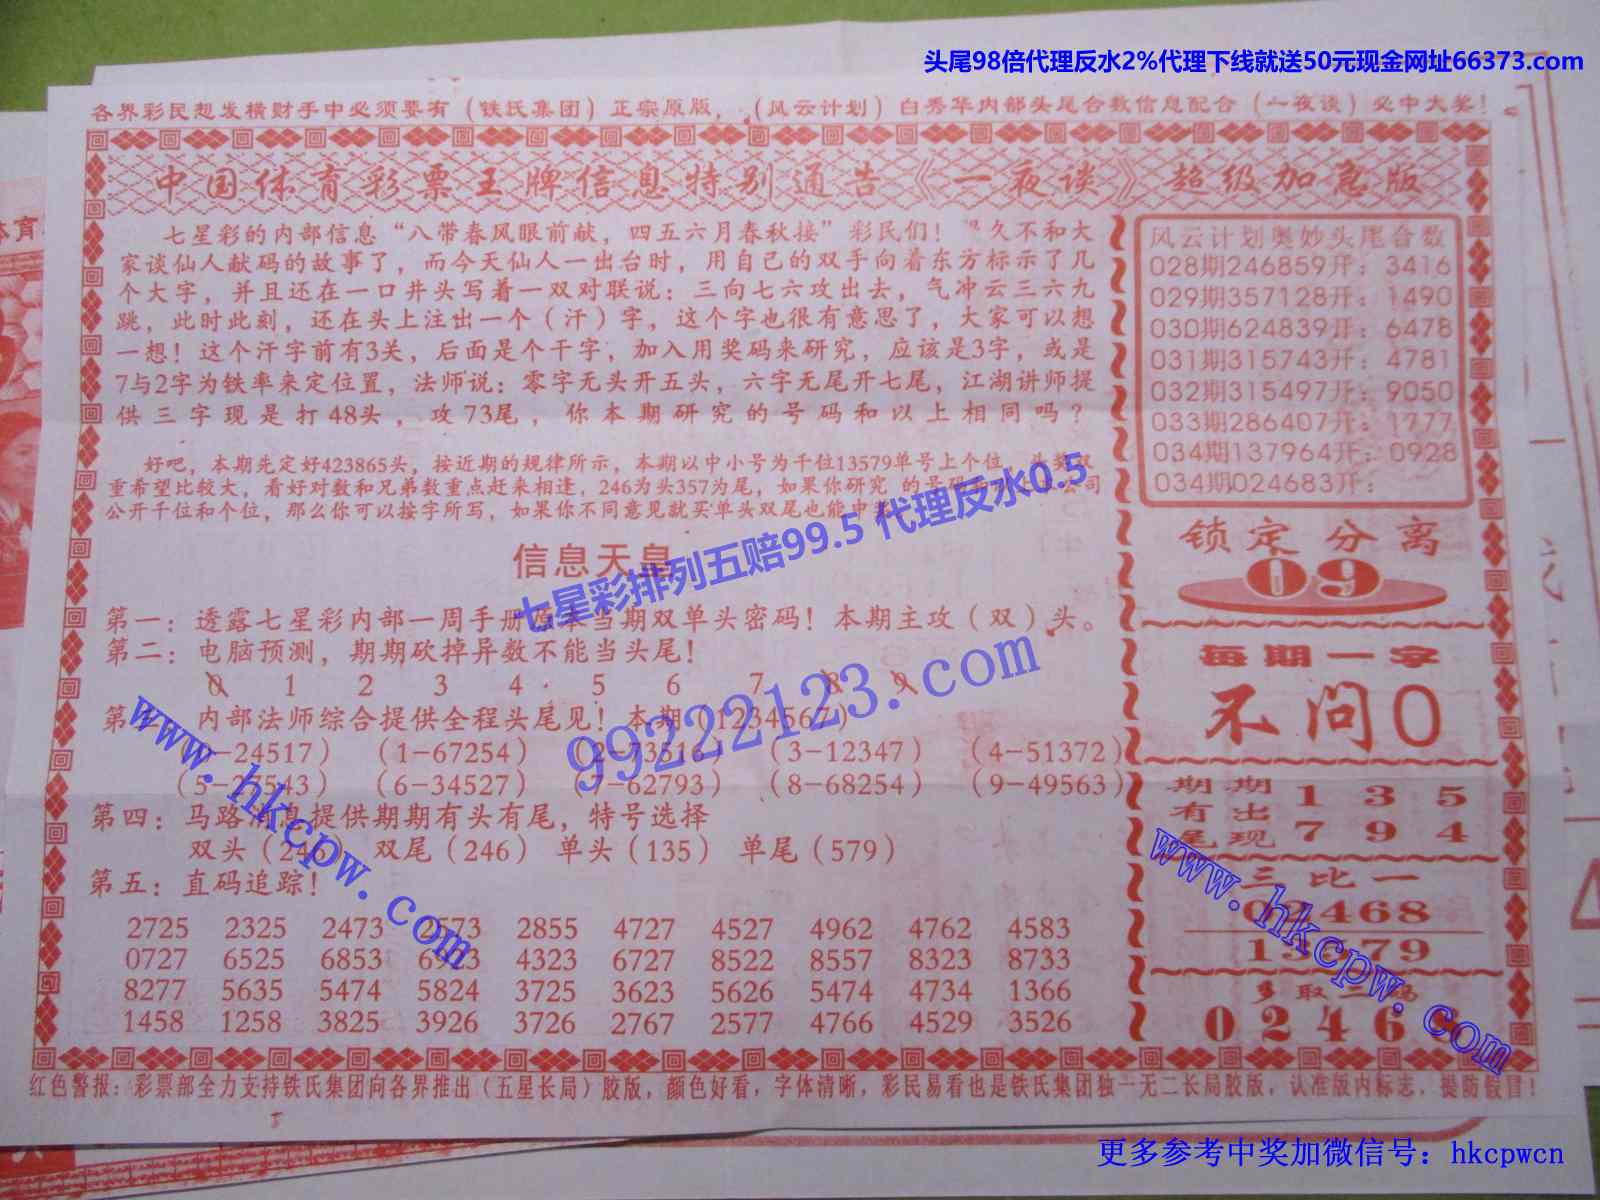 头尾98倍代理反水2%代理下线就送50元现金网址66373.com
各界彩民想发横财手中必须要有（铁氏集团）正宗原版，（风云计划）白秀华内部头尾合数信息配合（一夜谈）必中大奖！
中国体育彩票王牌信息特别通告《一夜谈》超级加急版
七星彩的内部信息“八带春风眼前献，四五六月春秋接”彩民们！ 久不和大
家谈仙人献码的故事了，而今天仙人一出台时，用自己的双手向着东方标示了几
个大字，并且还在一口井头写着一双对联说：三向七六攻出去，气冲云三六九
跳，此时此刻，还在头上注出一个（汗）字，这个字也很有意思了，大家可以想
一想！这个汗字前有3关，后面是个干字，加入用奖码来研究，应该是3字，或是
7与2字为铁率来定位置，法师说：零字无头开五头，六字无尾开七尾，江湖讲师提
供三字现是打48头，攻73尾，你本期研究的号码和以上相同吗？
好吧，本期先定好423865头，按近期的规律所示，本期以中小号为千位13579单号上个位，头奖双
重希望比较大，看好对数和兄弟数重点赶来相逢，246为头357为尾，如果你研究 的号码 公司
公开千位和个位，那么你可以按字所写，如果你不同意见就买单头双尾也能中奖
信息天皇
第一：透露七星彩内部一周手册原本当期双单头密码！本期主攻（双）头。
第二：电脑预测，期期砍掉异数不能当头尾！
0 1 2 3 4 5 6 7 8 9
第三：内部法师综合提供全程头尾见！本期（1234567）
-24517） （1-67254） （2-73516） （3-12347） （4-51372）
（5-27543） （6-34527） （7-62793） （8-68254） （9-49563）
第四：马路消息提供期期有头有尾，特号选择
双头（246） 双尾（246） 单头（135） 单尾（579）
第五：直码追踪！
2725 2325 2473 2573 2855 4727 4527 4962 4762 4583
0727 6525 6853 6923 4323 6727 8522 8557 8323 8733
8277 5635 5474 5824 3725 3623 5626 5474 4734 1366
1458 1258 3825 3926 3726 2767 2577 4766 4529 3526
风云计划奥妙头尾合数
028期246859开：3416
029期357128开：1490
030期624839开：6478
031期315743开：4781
032期315497开：9050
033期286407开：1777
034期137964开：0928
034期024683开：
锁定分离
09
每期一字
不问0
期期 1 3 5
有出
尾现 7 9 4
三比一
02468
13579
多取二码
0 2 4 6
红色警报：彩票部全力支持铁氏集团向各界推出（五星长局）胶版，颜色好看，字体清晰，彩民易看也是铁氏集团独一无二长局胶版，认准版内标志，提防假冒！
七星彩排列五赔99.5 代理反水0.5
99222123.com
www.hkcpw.com
www.hkcpw.com
更多参考中奖加微信号：hkcpwcn